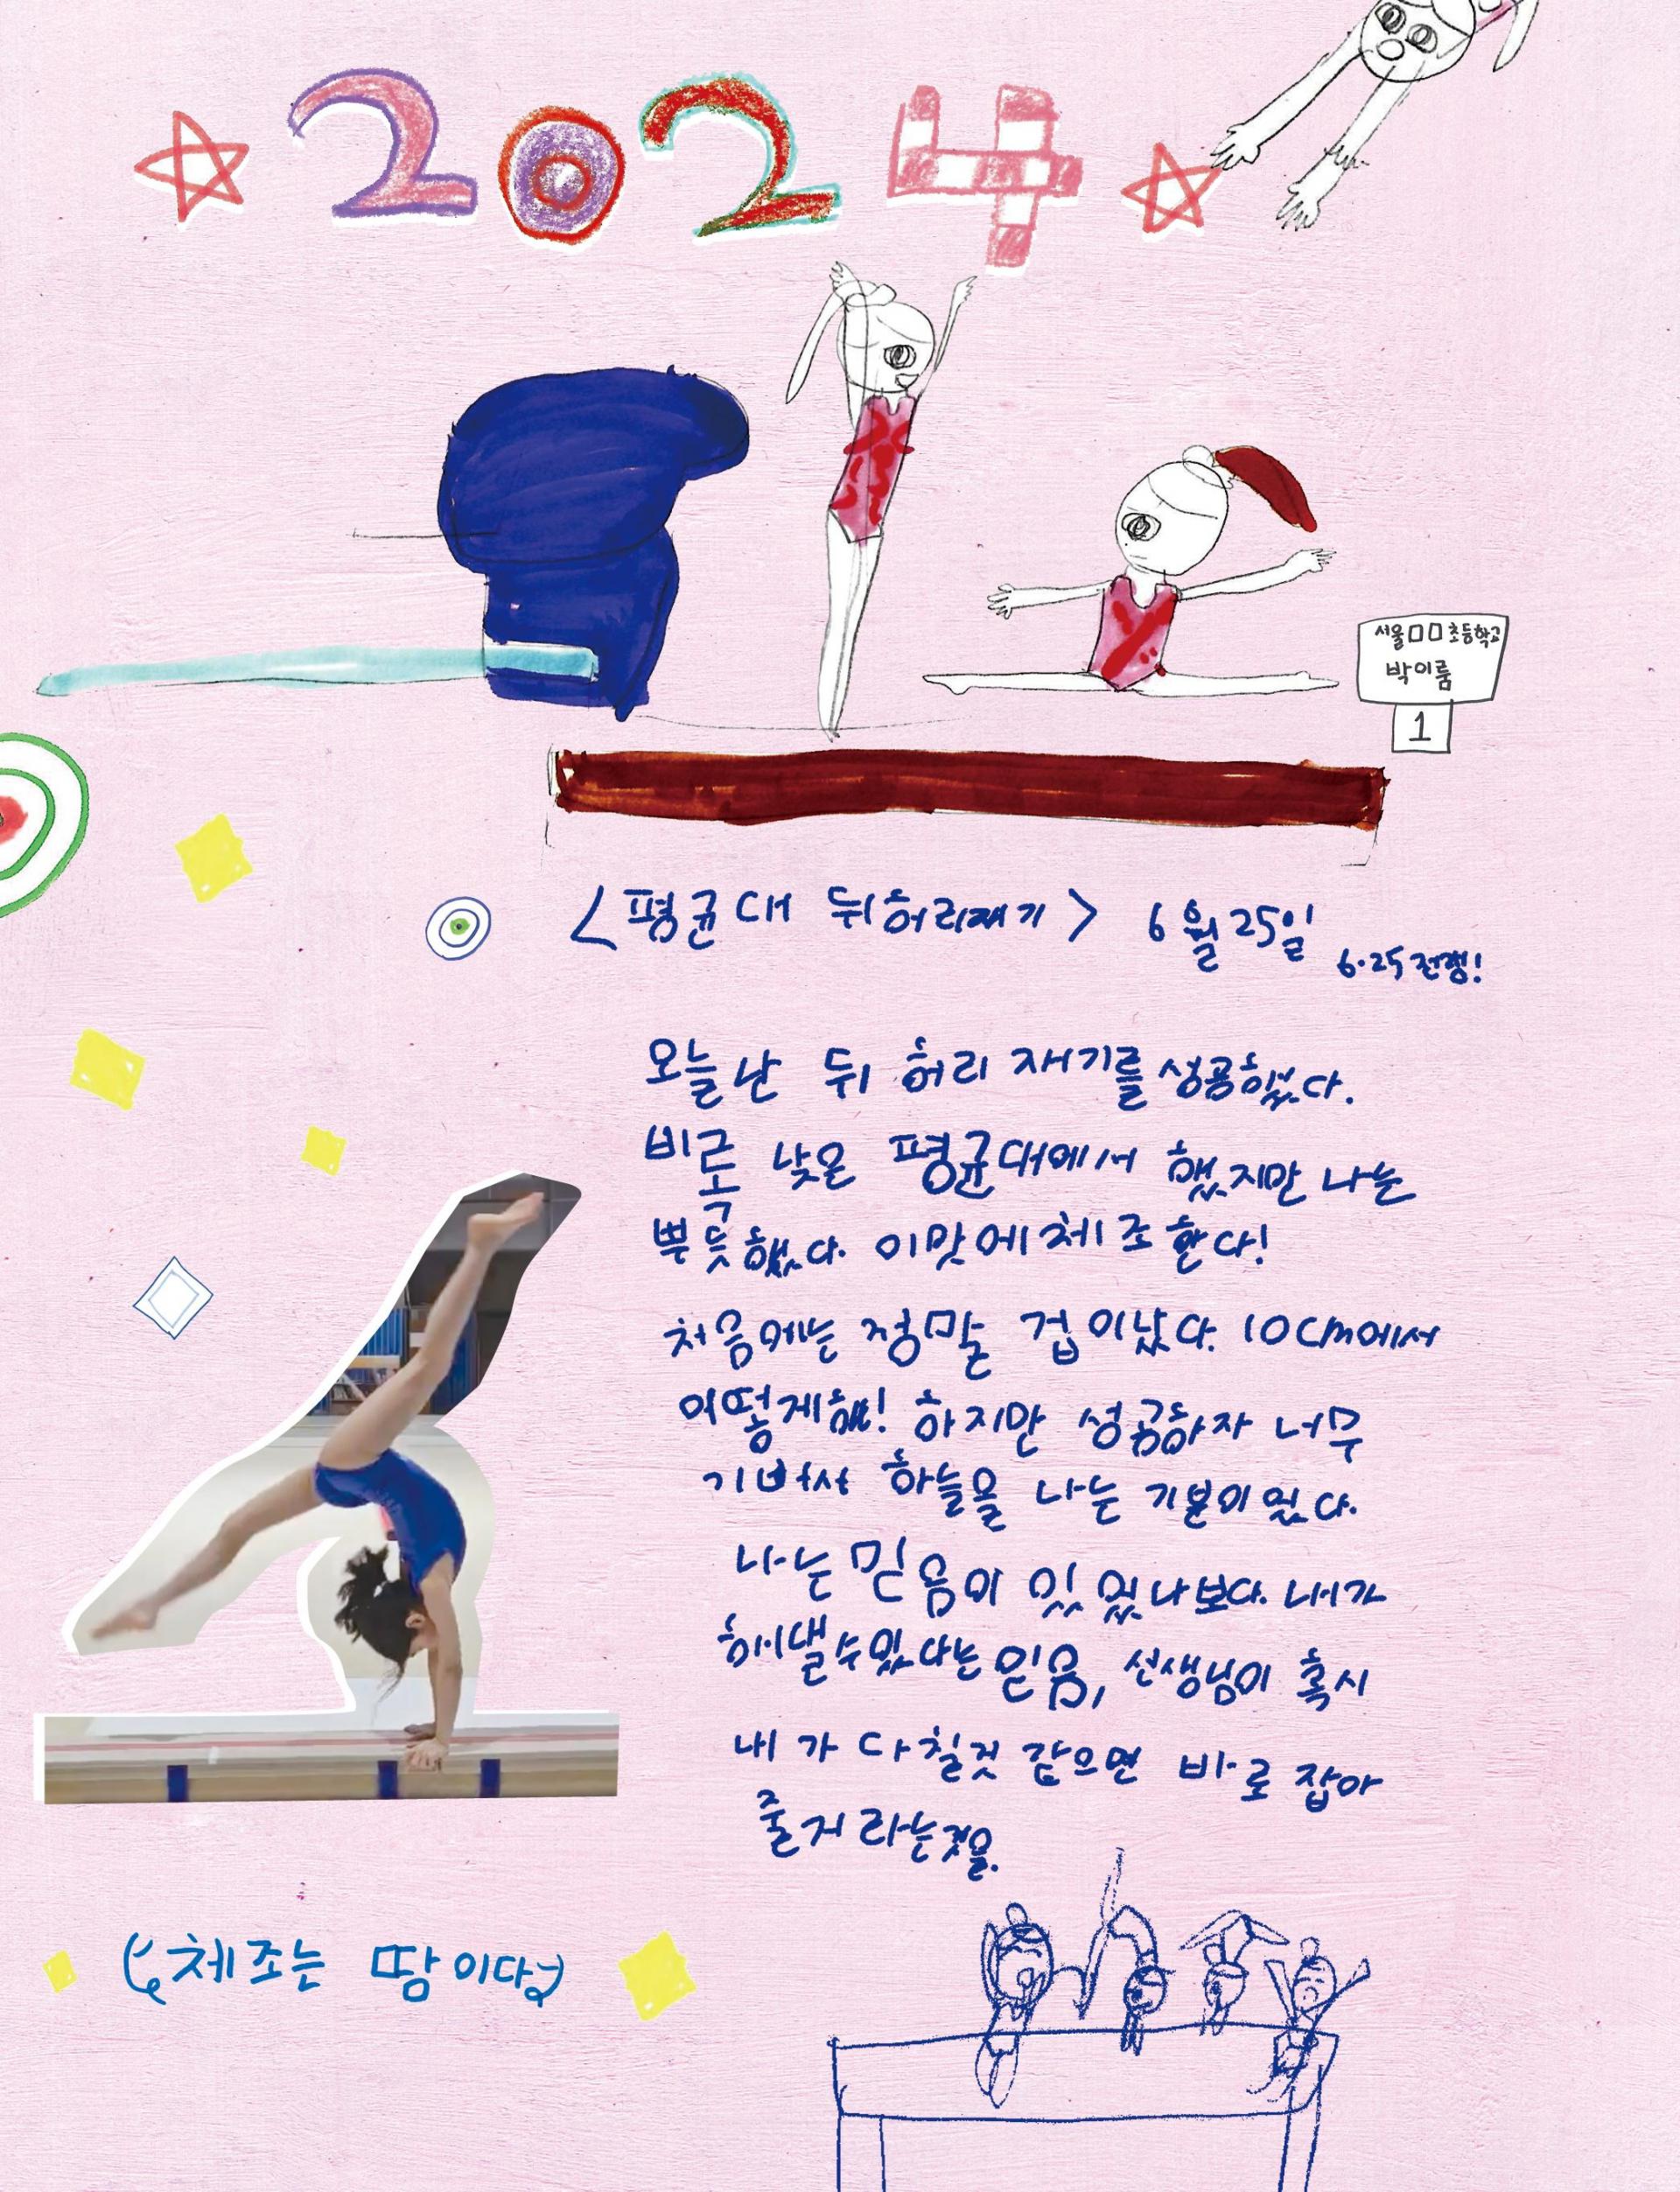 2024
서울□□초등학교
박이룸
1
<평균대 뒤허리재기> 6월 25일
6·25 전쟁!
오늘 난 뒤 허리 재기를 성공했다.
비록 낮은 평균대에서 했지만 나는
뿌듯했다. 이맛에 체조 한다!
처음에는 정말 겁이났다. 10cm에서
어떻게해! 하지만 성공하자 너무
기뻐서 하늘을 나는 기분이 었다.
나는 믿음이 있 었나보다. 내가
해낼수있다는 믿음, 선생님이 혹시
내가 다칠것 같으면 바로 잡아
줄거 라는것을.
체조는 땀이다